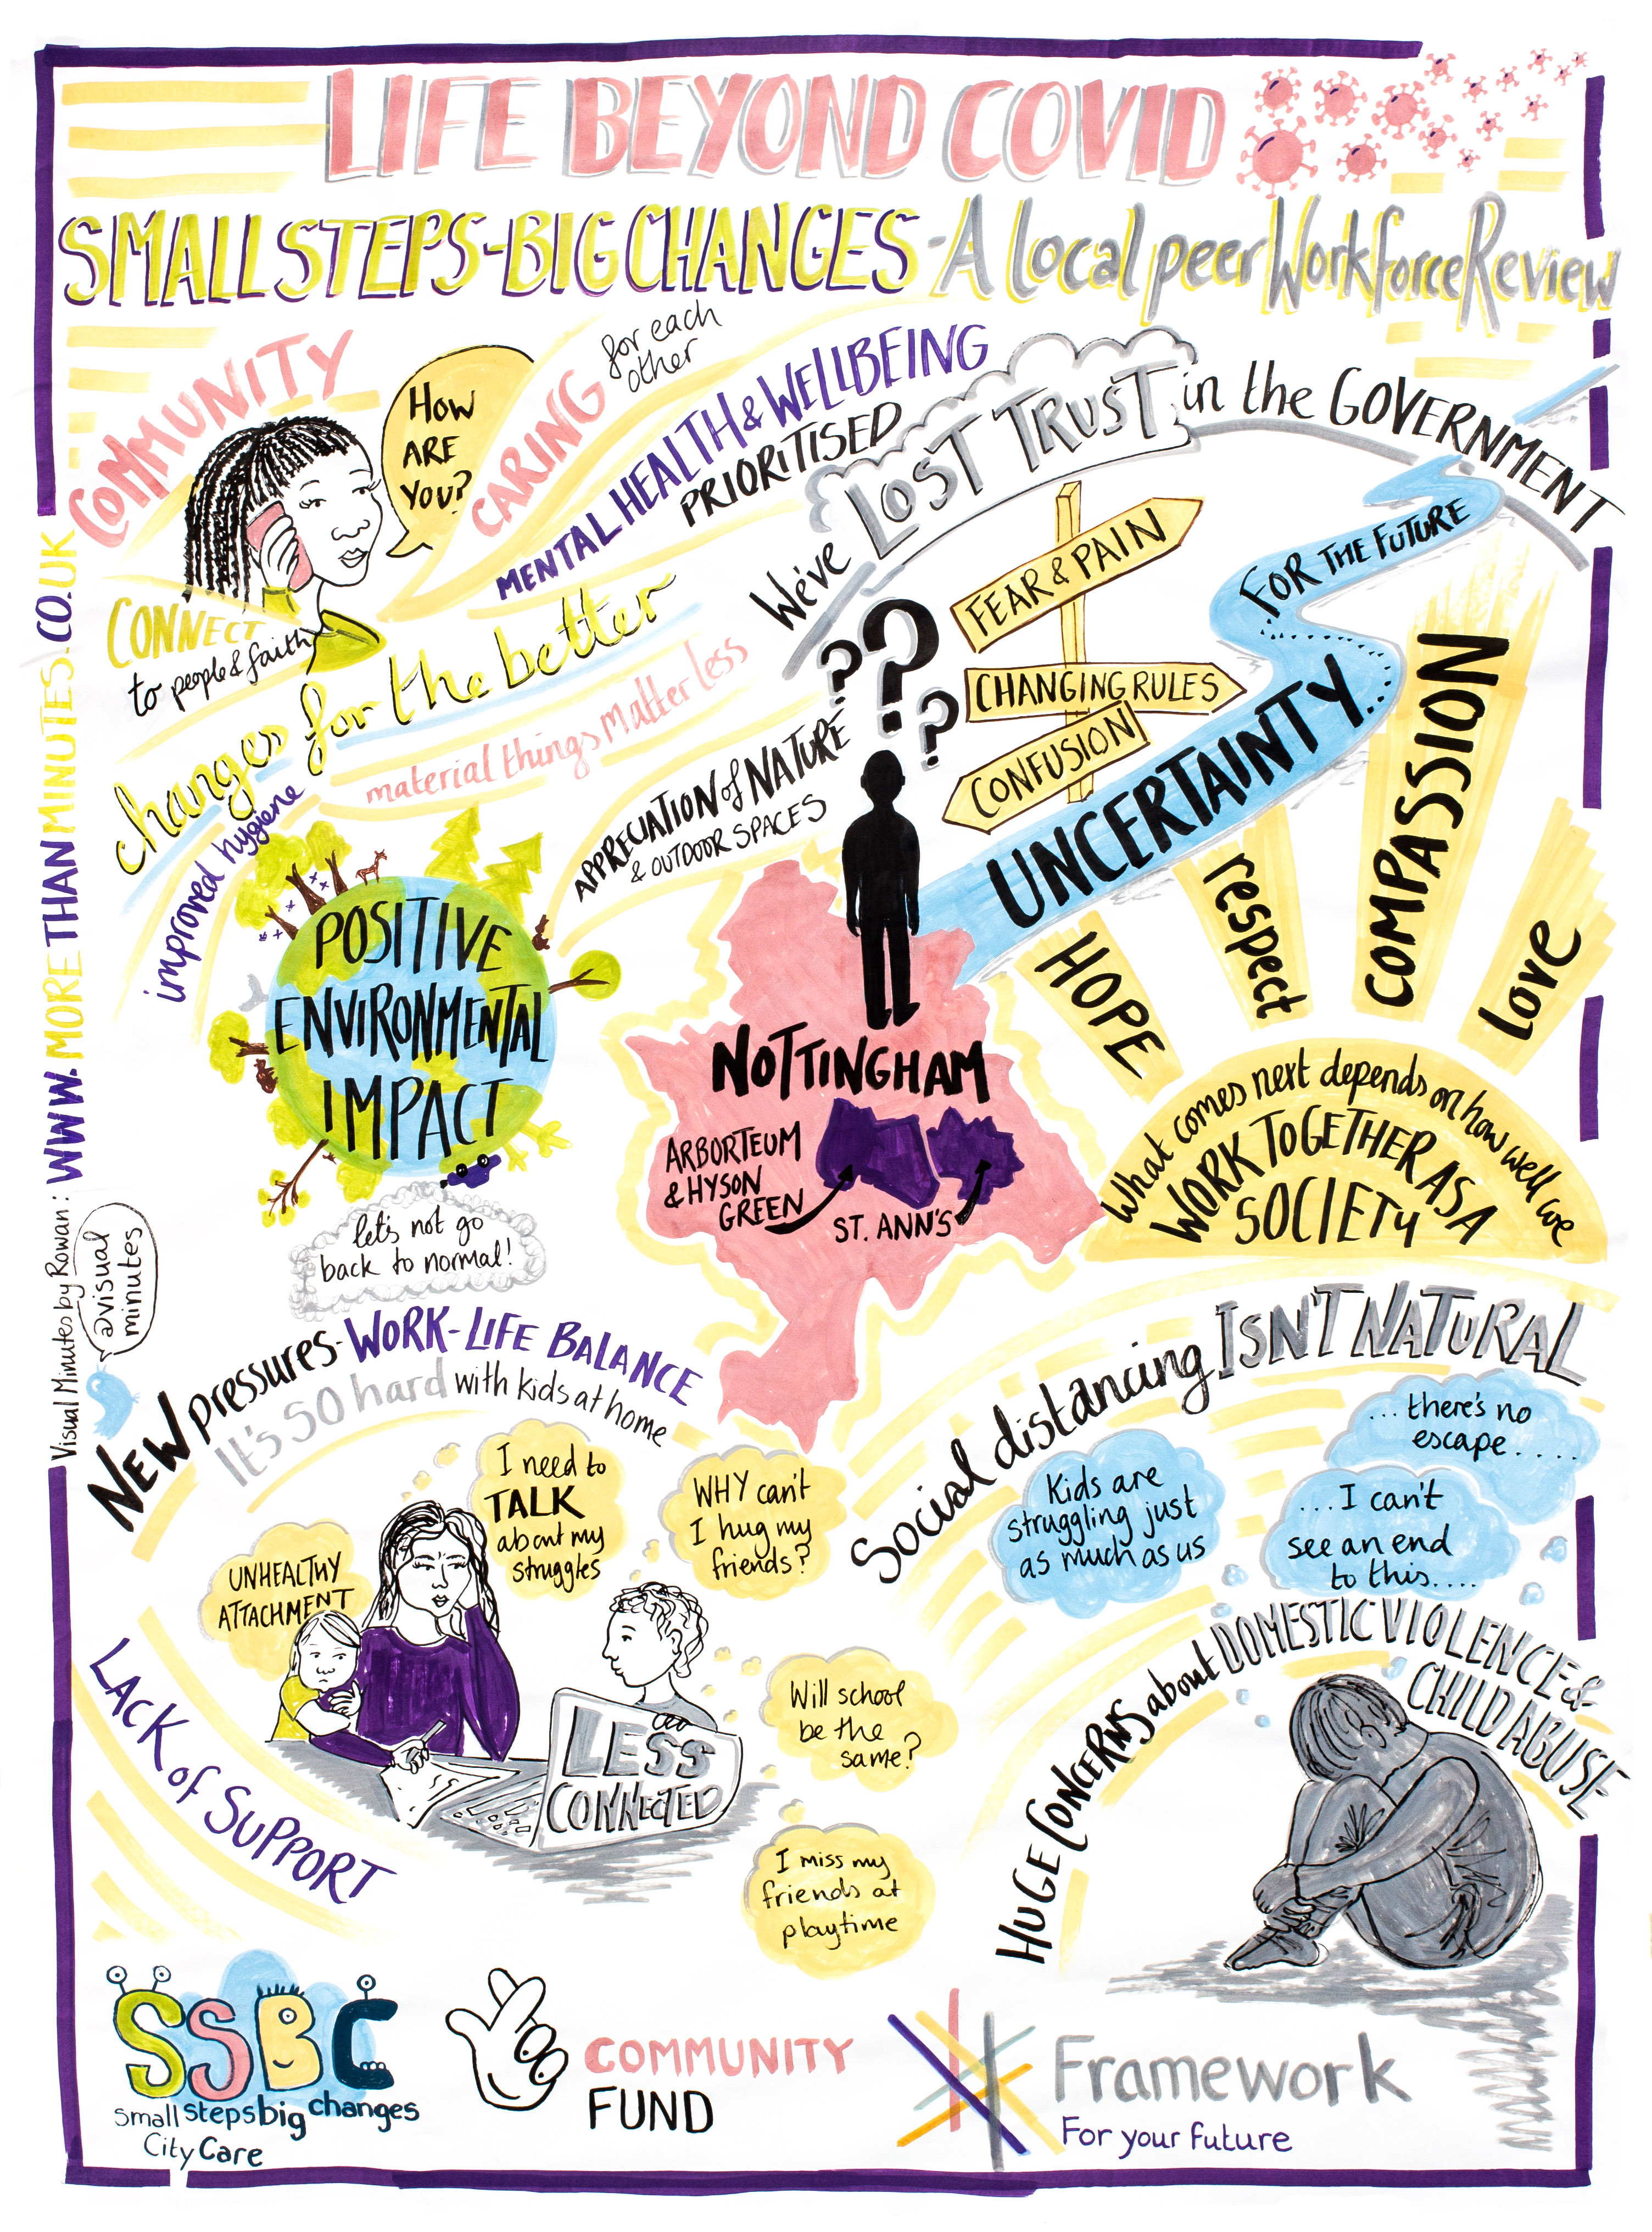 LIFE BEYOND COVID
SMALL STEPS-BIG CHANGES-A local peer Workforce Review
COMMUNITY
HOW
ARE
YOU?
CARING for each
other
MENTAL HEALTH & WELLBEING
PRIORITISED
CONNECT
to people & faith
changes for the better
improved hygiene
material things matter less
APPRECIATION of NATURE
& OUTDOOR SPACES
POSITIVE
ENVIRONMENTAL
IMPACT
let's not go
back to normal!
We've LOST TRUST in the GOVERNMENT
???
FEAR & PAIN
CHANGING RULES
CONFUSION
UNCERTAINTY...
FOR THE FUTURE
HOPE
respect
COMPASSION
love
What comes next depends on how well we
WORK TOGETHER AS A
SOCIETY
NOTTINGHAM
ARBORTEUM
& HYSON
GREEN
ST. ANN'S
NEW pressures-WORK-LIFE BALANCE
It's SO hard with kids at home
UNHEALTHY
ATTACHMENT
I need to
TALK
about my
struggles
WHY can't
I hug my
friends?
Will school
be the
same?
I miss my
friends at
playtime
LESS
CONNECTED
LACK of SUPPORT
Social distancing ISN'T NATURAL
Kids are
struggling just
as much as us
... there's no
escape.....
...I can't
see an end
to this....
HUGE CONCERNS about DOMESTIC VIOLENCE &
CHILD ABUSE
Visual Minutes by Rowan: WWW.MORE THAN MINUTES.CO.UK
@visual
minutes
SSBC
Small steps big changes
City Care
COMMUNITY
FUND
Framework
For your future